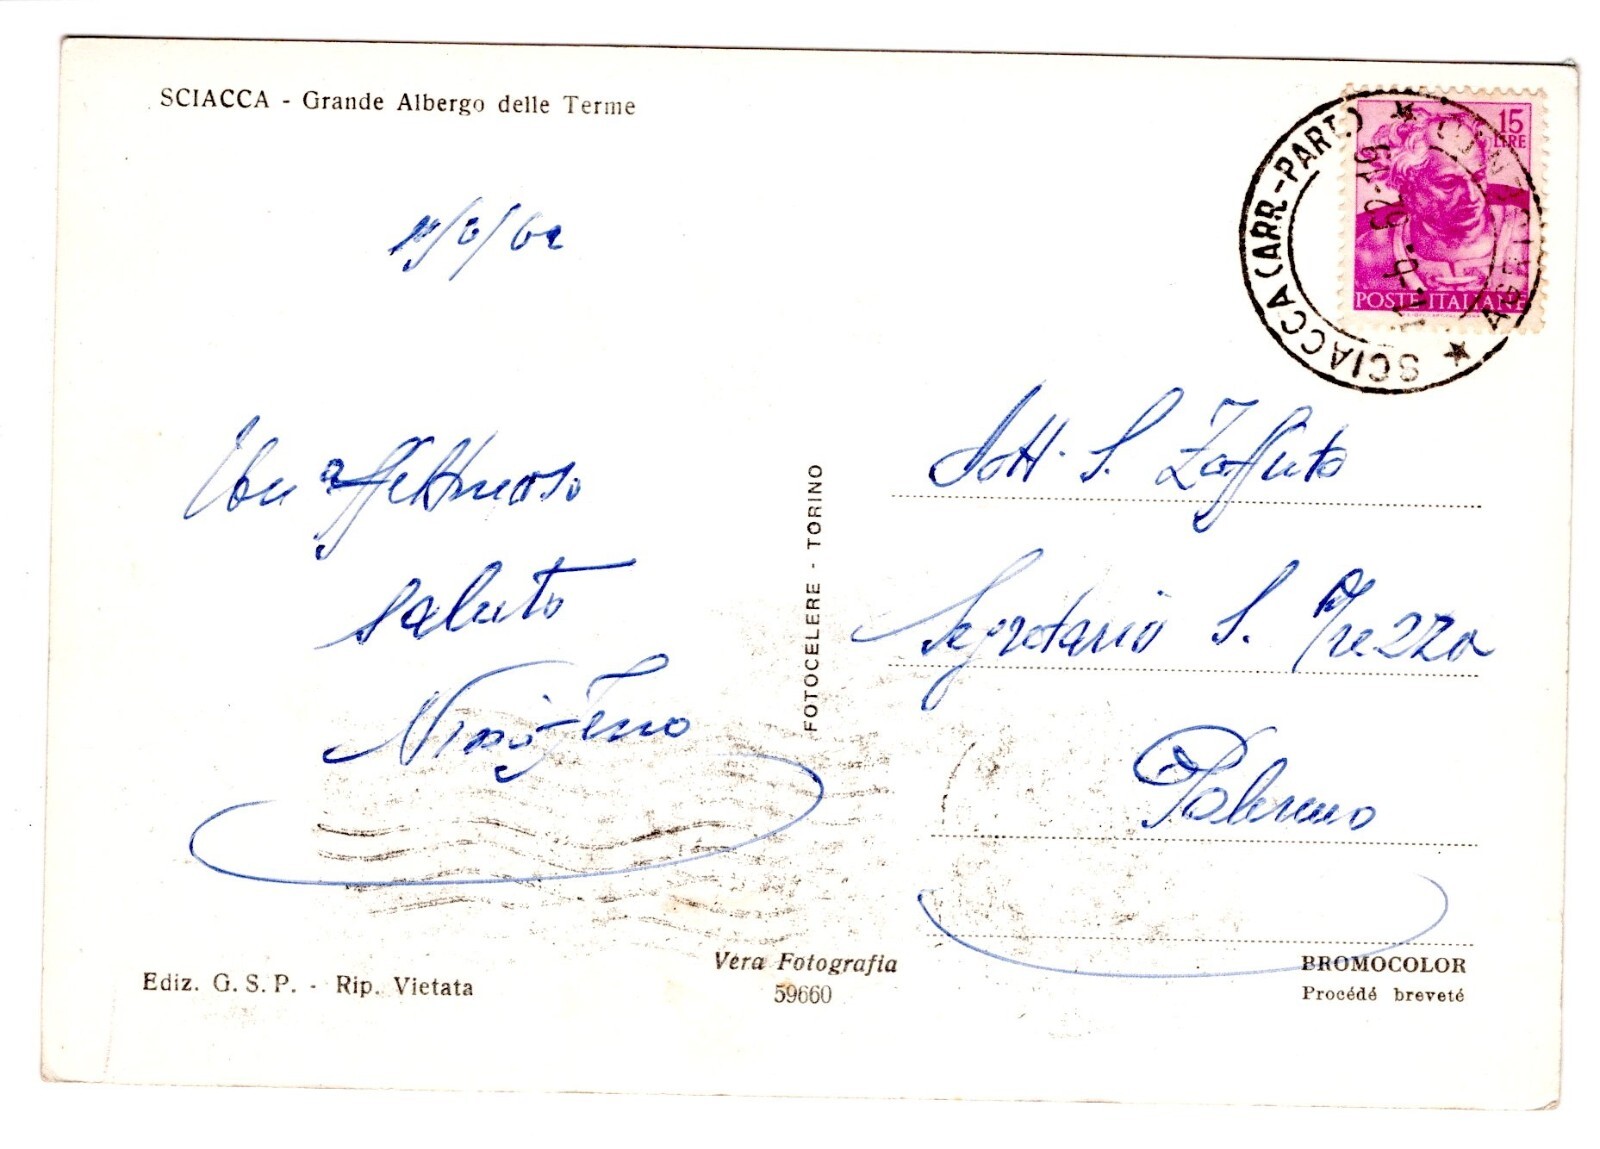 SCIACCA - Grande Albergo delle Terme
15 LIRE
POSTE ITALIANE
SCIACCA (ARR.-PART.)
AGRIGENTO
/6/62
Un affettuoso
saluto
Nino
Dott. S. Zaffuto
Segretario S. Prezzo
Palermo
FOTOCELERE - TORINO
Ediz. G. S. P. - Rip. Vietata
Vera Fotografia
59660
BROMOCOLOR
Procédé breveté